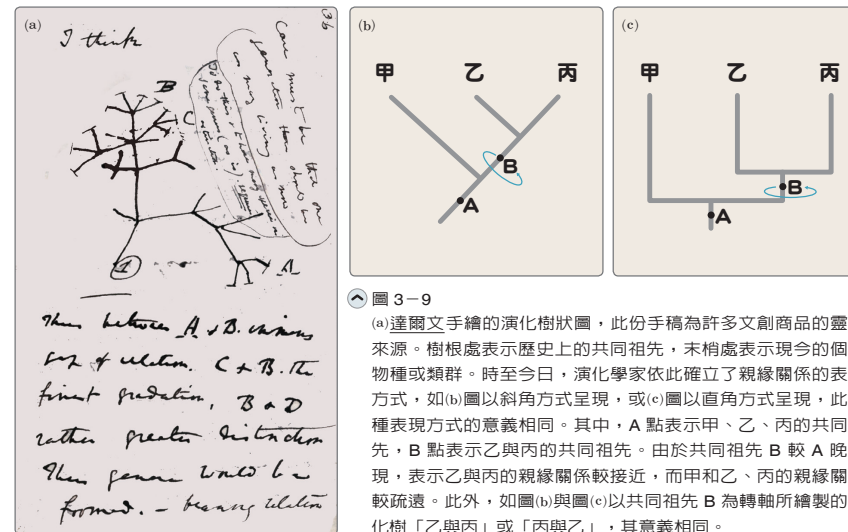 (a)
36
I think
B
C
A
1
Care must be that one
generation then should be
as many living as now.
To do this & to have many species in
same genus (as is). requires
extinction.
Thus between A & B. immense
gap of relation. C & B. the
finest gradation, B & D
rather greater distinction
Thus genera would be
formed. – bearing relation
(b)
甲 乙 丙
B
A
(c)
甲 乙 丙
B
A
圖 3-9
(a)達爾文手繪的演化樹狀圖,此份手稿為許多文創商品的靈
來源。樹根處表示歷史上的共同祖先,末梢處表示現今的個
物種或類群。時至今日,演化學家依此確立了親緣關係的表
方式,如(b)圖以斜角方式呈現,或(c)圖以直角方式呈現,此
種表現方式的意義相同。其中,A 點表示甲、乙、丙的共同
先,B 點表示乙與丙的共同祖先。由於共同祖先 B 較 A 晚
現,表示乙與丙的親緣關係較接近,而甲和乙、丙的親緣關
較疏遠。此外,如圖(b)與圖(c)以共同祖先 B 為轉軸所繪製的
化樹「乙與丙」或「丙與乙」,其意義相同。